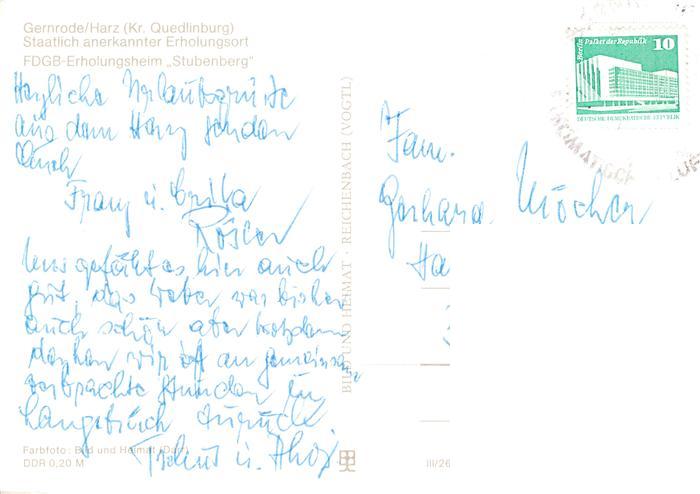 Gernrode/Harz (Kr. Quedlinburg)
Staatlich anerkannter Erholungsort
FDGB-Erholungsheim „Stubenberg“
Herzliche Urlaubsgrüße
aus dem Harz senden
Euch
Franz u. Erika
Rösler
Uns gefällt es hier auch
gut, das Wetter war bisher
auch schön aber trotzdem
denken wir oft an gemeinsam
verbrachte Stunden in
zurück.
Tschüß u. Ahoj
Farbfoto: Bild und Heimat
DDR 0,20 M
BILD UND HEIMAT · REICHENBACH (VOGTL)
III/26
Fam.
Gerhard
Ha
Berlin Palast der Republik 10
DEUTSCHE DEMOKRATISCHE REPUBLIK